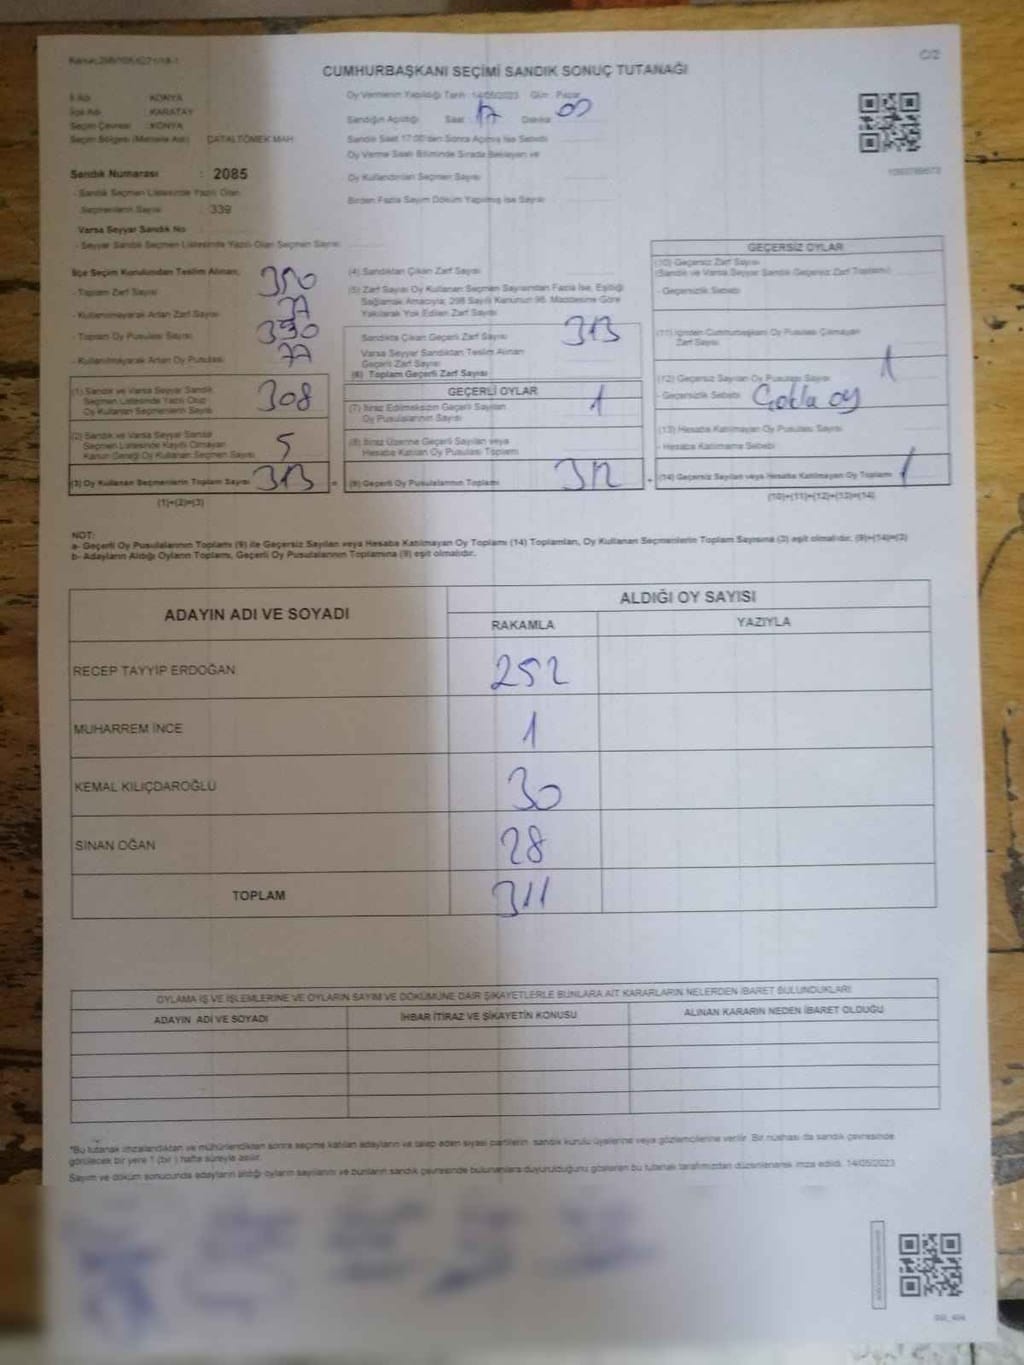 C/2
CUMHURBAŞKANI SEÇİMİ SANDIK SONUÇ TUTANAĞI
İl Adı : KONYA
İlçe Adı : KARATAY
Seçim Çevresi : KONYA
Seçim Bölgesi (Mahalle Adı) : ÇATALTÖMEK MAH
Oy Vermenin Yapıldığı Tarih : 14/05/2023 Gün : Pazar
Sandığın Açıldığı Saat : 17 Dakika : 00
Sandık Saat 17:00'den Sonra Açılmış İse Sebebi
Oy Verme Saati Bitiminde Sırada Bekleyen ve
Oy Kullandırılan Seçmen Sayısı
Birden Fazla Sayım Döküm Yapılmış İse Sayısı
Sandık Numarası : 2085
- Sandık Seçmen Listesinde Yazılı Olan
Seçmenlerin Sayısı : 339
Varsa Seyyar Sandık No
- Seyyar Sandık Seçmen Listesinde Yazılı Olan Seçmen Sayısı
İlçe Seçim Kurulundan Teslim Alınan;
- Toplam Zarf Sayısı
- Kullanılmayarak Artan Zarf Sayısı 77
- Toplam Oy Pusulası Sayısı
- Kullanılmayarak Artan Oy Pusulası 77
(1) Sandık ve Varsa Seyyar Sandık
Seçmen Listesinde Yazılı Olup
Oy Kullanan Seçmenlerin Sayısı 308
(2) Sandık ve Varsa Seyyar Sandık
Seçmen Listesinde Kayıtlı Olmayan
Kanun Gereği Oy Kullanan Seçmen Sayısı 5
(3) Oy Kullanan Seçmenlerin Toplam Sayısı 313 =
(1)+(2)=(3)
(4) Sandıktan Çıkan Zarf Sayısı
(5) Zarf Sayısı Oy Kullanan Seçmen Sayısından Fazla İse, Eşitliği
Sağlamak Amacıyla; 298 Sayılı Kanunun 98. Maddesine Göre
Yakılarak Yok Edilen Zarf Sayısı
Sandıkta Çıkan Geçerli Zarf Sayısı 313
Varsa Seyyar Sandıktan Teslim Alınan
Geçerli Zarf Sayısı
(6) Toplam Geçerli Zarf Sayısı
GEÇERLİ OYLAR
(7) İtiraz Edilmeksizin Geçerli Sayılan
Oy Pusulalarının Sayısı 1
(8) İtiraz Üzerine Geçerli Sayılan veya
Hesaba Katılan Oy Pusulası Toplamı
(9) Geçerli Oy Pusulalarının Toplamı 312 +
GEÇERSİZ OYLAR
(10) Geçersiz Zarf Sayısı
(Sandık ve Varsa Seyyar Sandık Geçersiz Zarf Toplamı)
- Geçersizlik Sebebi
(11) İçinden Cumhurbaşkanı Oy Pusulası Çıkmayan
Zarf Sayısı
(12) Geçersiz Sayılan Oy Pusulası Sayısı 1
- Geçersizlik Sebebi oy
(13) Hesaba Katılmayan Oy Pusulası Sayısı
- Hesaba Katılmama Sebebi
(14) Geçersiz Sayılan veya Hesaba Katılmayan Oy Toplamı 1
(10)+(11)+(12)+(13)=(14)
NOT:
a- Geçerli Oy Pusulalarının Toplamı (9) ile Geçersiz Sayılan veya Hesaba Katılmayan Oy Toplamı (14) Toplamları, Oy Kullanan Seçmenlerin Toplam Sayısına (3) eşit olmalıdır. (9)+(14)=(3)
b- Adayların Aldığı Oyların Toplamı, Geçerli Oy Pusulalarının Toplamına (9) eşit olmalıdır.
ADAYIN ADI VE SOYADI
ALDIĞI OY SAYISI
RAKAMLA YAZIYLA
RECEP TAYYİP ERDOĞAN 252
MUHARREM İNCE 1
KEMAL KILIÇDAROĞLU 30
SİNAN OĞAN 28
TOPLAM 311
OYLAMA İŞ VE İŞLEMLERİNE VE OYLARIN SAYIM VE DÖKÜMÜNE DAİR ŞİKAYETLERLE BUNLARA AİT KARARLARIN NELERDEN İBARET BULUNDUKLARI
ADAYIN ADI VE SOYADI İHBAR İTİRAZ VE ŞİKAYETİN KONUSU ALINAN KARARIN NEDEN İBARET OLDUĞU
*Bu tutanak imzalandıktan ve mühürlendikten sonra seçime katılan adayların ve talep eden siyasi partilerin sandık kurulu üyelerine veya gözlemcilerine verilir. Bir nüshası da sandık çevresinde
görülecek bir yere 1 (bir) hafta süreyle asılır.
Sayım ve döküm sonucunda adayların aldığı oyların sayılarını ve bunların sandık çevresinde bulunanlara duyurulduğunu gösteren bu tutanak tarafımızdan düzenlenerek imza edildi. 14/05/2023